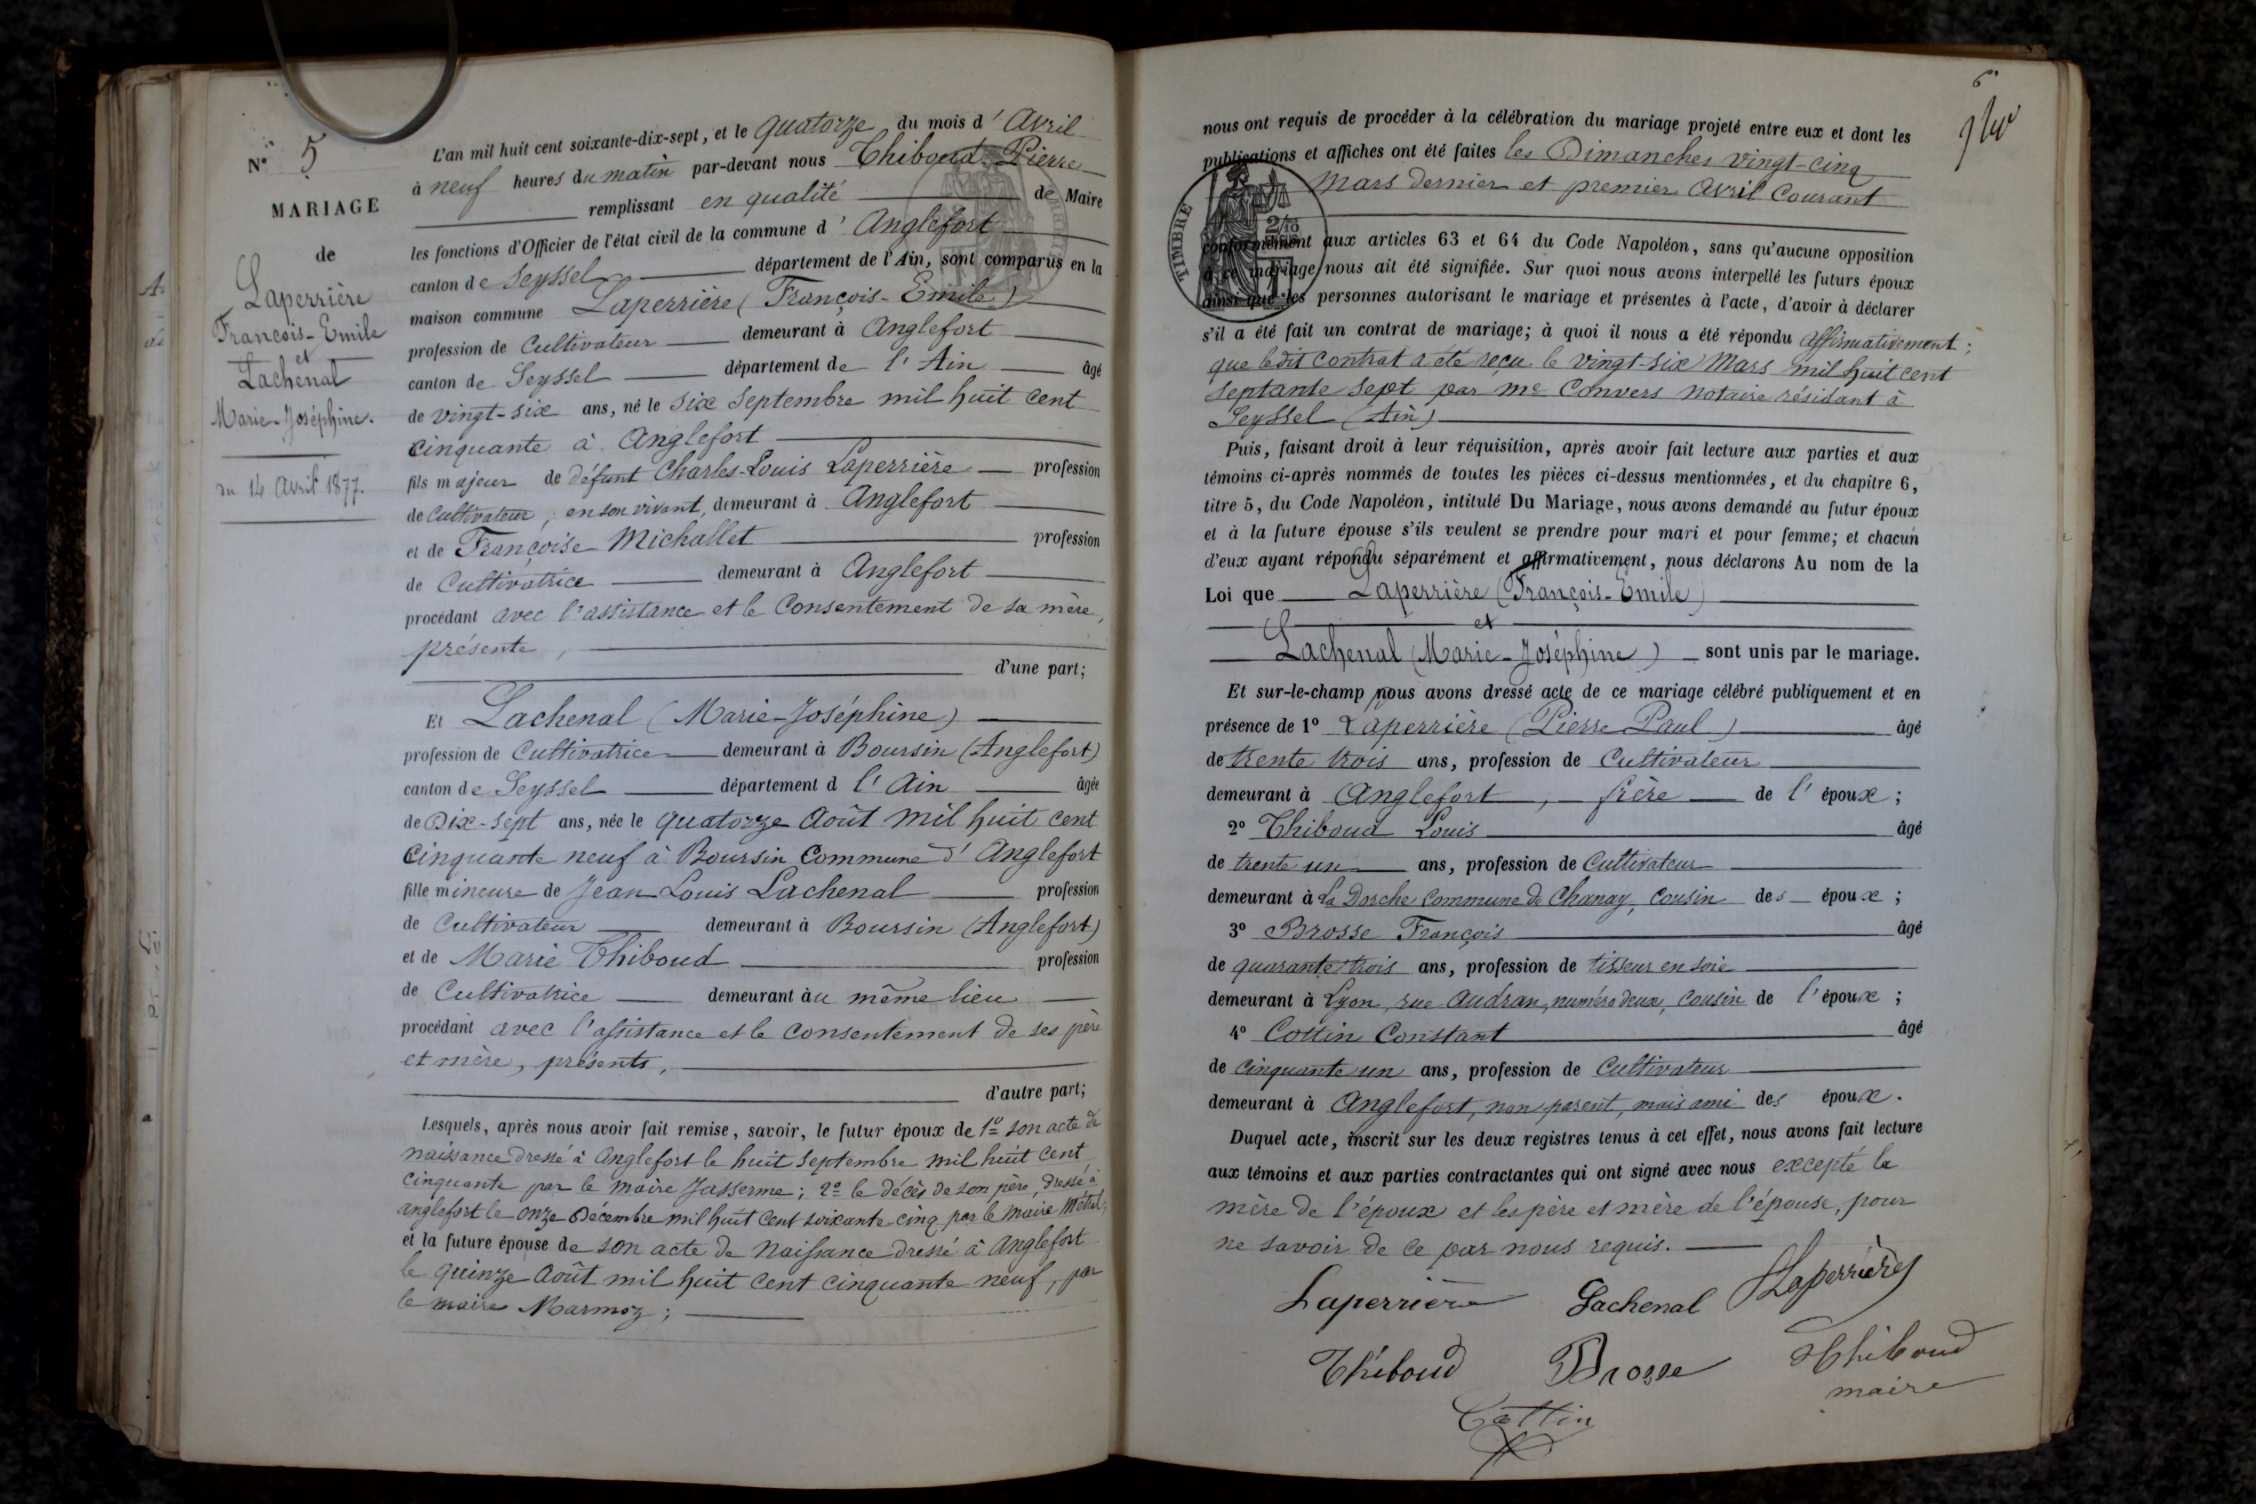 N° 5
MARIAGE
de
Laperrière
François-Emile
et
Lachenal
Marie-Joséphine.
du 14 Avril 1877.
L'an mil huit cent soixante-dix-sept, et le quatorze du mois d'Avril
à neuf heures du matin par-devant nous Thiboud Pierre
remplissant en qualité de Maire
les fonctions d'Officier de l'état civil de la commune d'Anglefort
canton de Seyssel département de l'Ain, sont comparus en la
maison commune Laperrière (François-Emile)
profession de Cultivateur demeurant à Anglefort
canton de Seyssel département de l'Ain âgé
de vingt-six ans, né le six Septembre mil huit cent
cinquante à Anglefort
fils majeur de défunt Charles-Louis Laperrière profession
de Cultivateur, en son vivant, demeurant à Anglefort
et de Françoise Michallet profession
de Cultivatrice demeurant à Anglefort
procédant avec l'assistance et le Consentement de sa mère,
présente,
d'une part;
Et Lachenal (Marie-Joséphine)
profession de Cultivatrice demeurant à Boursin (Anglefort)
canton de Seyssel département d l'Ain âgée
de Dix-sept ans, née le quatorze Août mil huit cent
Cinquante neuf à Boursin Commune d'Anglefort
fille mineure de Jean Louis Lachenal profession
de Cultivateur demeurant à Boursin (Anglefort)
et de Marie Thiboud profession
de Cultivatrice demeurant au même lieu
procédant avec l'assistance et le consentement de ses père
et mère, présents,
d'autre part;
Lesquels, après nous avoir fait remise, savoir, le futur époux de 1° son acte de
naissance dressé à Anglefort le huit Septembre mil huit cent
cinquante par le maire Jasserme; 2° le décès de son père, dressé à
anglefort le onze Décembre mil huit cent soixante cinq par le Maire Métral;
et la future épouse de son acte de Naissance dressé à Anglefort
le quinze Août mil huit cent cinquante neuf, par
le maire Marmoz;
6
nous ont requis de procéder à la célébration du mariage projeté entre eux et dont les
publications et affiches ont été faites les Dimanches vingt-cinq
Mars dernier et premier Avril Courant
TIMBRE
conformément aux articles 63 et 64 du Code Napoléon, sans qu'aucune opposition
à ce mariage nous ait été signifiée. Sur quoi nous avons interpellé les futurs époux
ainsi que les personnes autorisant le mariage et présentes à l'acte, d'avoir à déclarer
s'il a été fait un contrat de mariage; à quoi il nous a été répondu affirmativement;
que ledit contrat a été reçu le vingt-six Mars mil huit cent
septante sept par Me Convers Notaire résidant à
Seyssel (Ain)
Puis, faisant droit à leur réquisition, après avoir fait lecture aux parties et aux
témoins ci-après nommés de toutes les pièces ci-dessus mentionnées, et du chapitre 6,
titre 5, du Code Napoléon, intitulé Du Mariage, nous avons demandé au futur époux
et à la future épouse s'ils veulent se prendre pour mari et pour femme; et chacun
d'eux ayant répondu séparément et affirmativement, nous déclarons Au nom de la
Loi que Laperrière (François-Emile)
et
Lachenal (Marie-Joséphine) sont unis par le mariage.
Et sur-le-champ nous avons dressé acte de ce mariage célébré publiquement et en
présence de 1° Laperrière (Pierre Paul) âgé
de trente trois ans, profession de Cultivateur
demeurant à Anglefort, frère de l'époux;
2° Thiboud Louis âgé
de trente un ans, profession de Cultivateur
demeurant à La Dorche Commune de Chanay, cousin des époux;
3° Brosse François âgé
de quarante trois ans, profession de tisseur en soie
demeurant à Lyon, rue Audran, numéro deux, cousin de l'époux;
4° Cottin Constant âgé
de cinquante un ans, profession de Cultivateur
demeurant à Anglefort, non parent, mais ami des époux.
Duquel acte, inscrit sur les deux registres tenus à cet effet, nous avons fait lecture
aux témoins et aux parties contractantes qui ont signé avec nous excepté la
mère de l'époux et les père et mère de l'épouse, pour
ne savoir de ce par nous requis.
Laperrière Lachenal Laperrière
Thiboud Brosse Thiboud
maire
Cottin